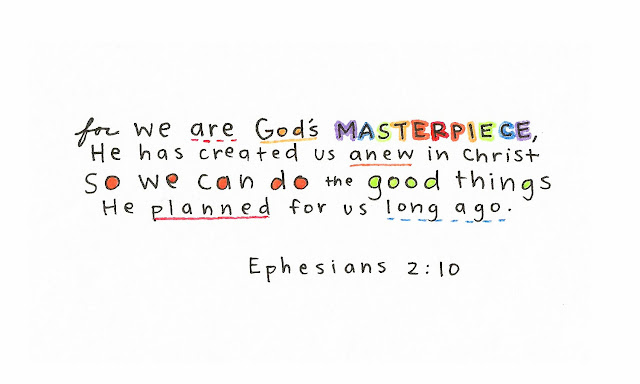 for we are God's MASTERPIECE,
He has created us anew in Christ
So we can do the good things
He planned for us long ago.
Ephesians 2:10